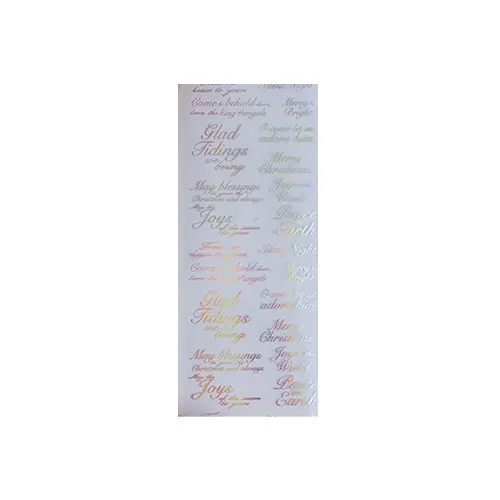 house to yours
Silent Night
Come & behold him
born the king of angels
Merry &
Bright
Glad
Tidings
we
bring
O come let us
adore him
Merry
Christmas
May blessings
be yours this
Christmas and always
May the
Joys
of the season
be yours
Joyous
Wishes
Peace
on
Earth
From our
house to yours
Silent Night
Come & behold him
born the king of angels
Merry &
Bright
Glad
Tidings
we
bring
O come let us
adore him
Merry
Christmas
May blessings
be yours this
Christmas and always
May the
Joys
of the season
be yours
Joyous
Wishes
Peace
on
Earth